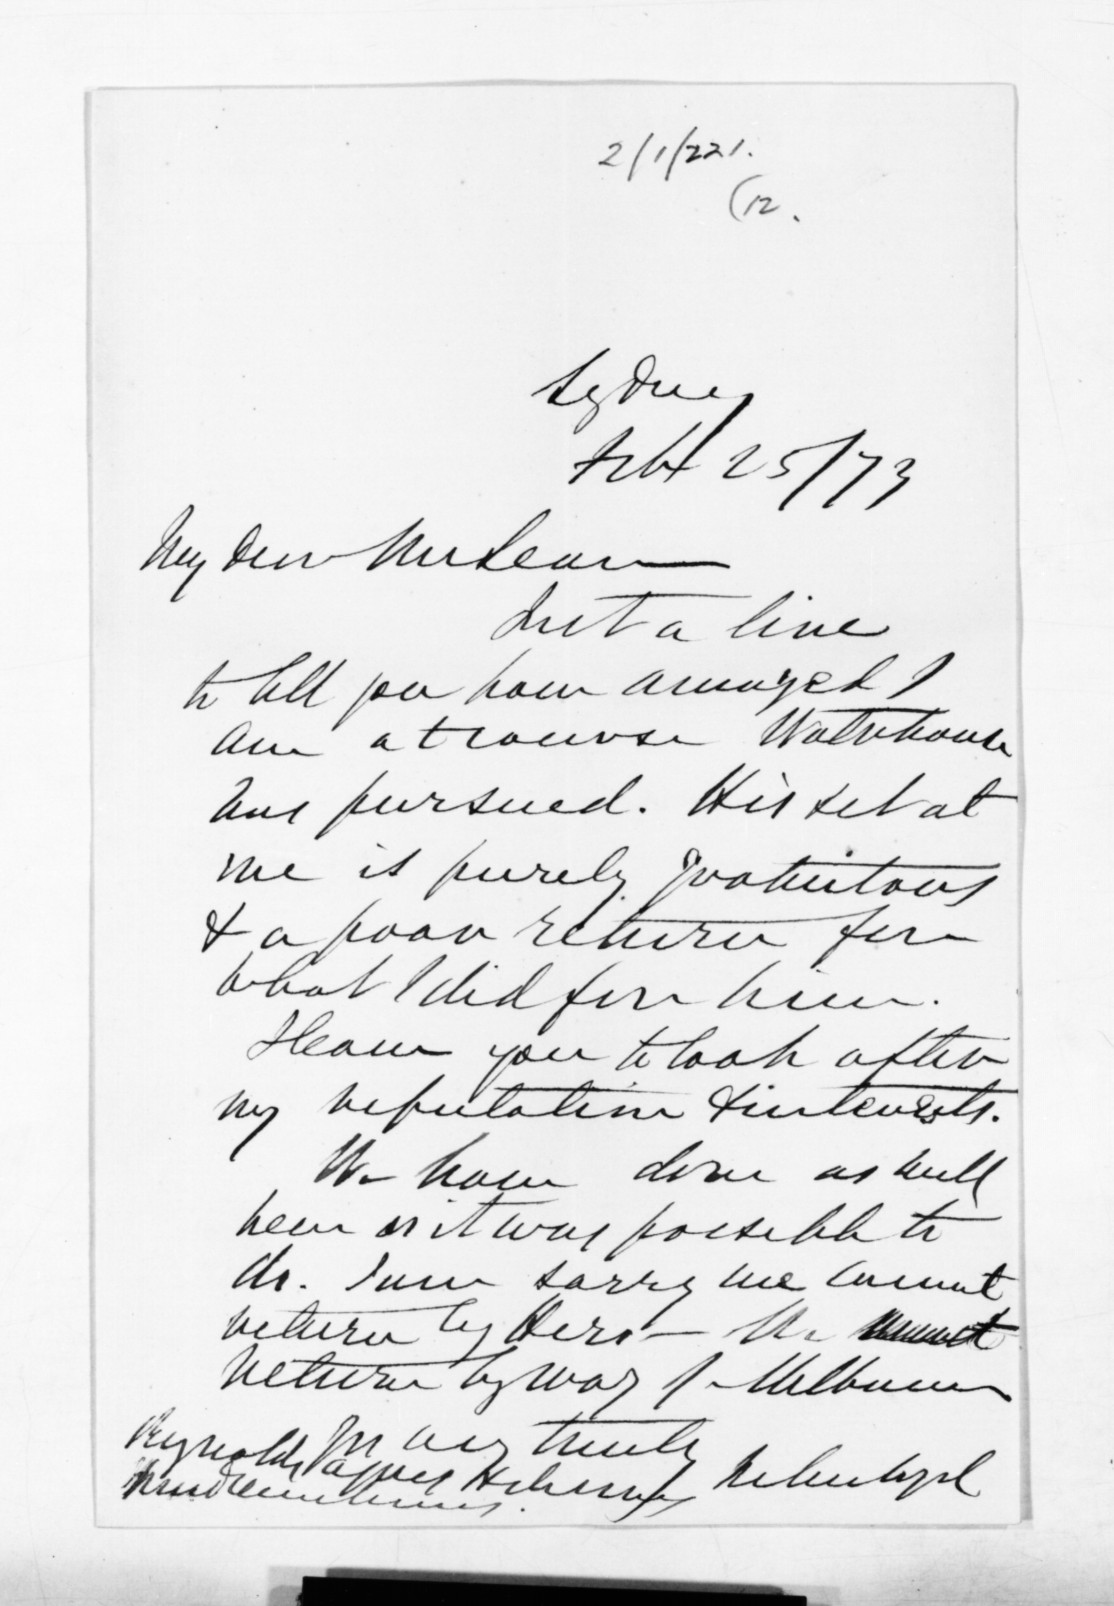 2/1/221.
(12.
Sydney
Feb 25/73
My dear McLean
Just a line
to tell you how annoyed I
am at course Waterhouse
has pursued. His set at
me is purely gratuitous
& a poor return for
what I did for him.
I leave you to look after
my reputation & interests.
We have done as well
here as it was possible to
do. I am sorry we cannot
return by Hero - We
return by way of Melbourne
Yrs very truly
Julius Vogel
Reynolds
kind remembrances.